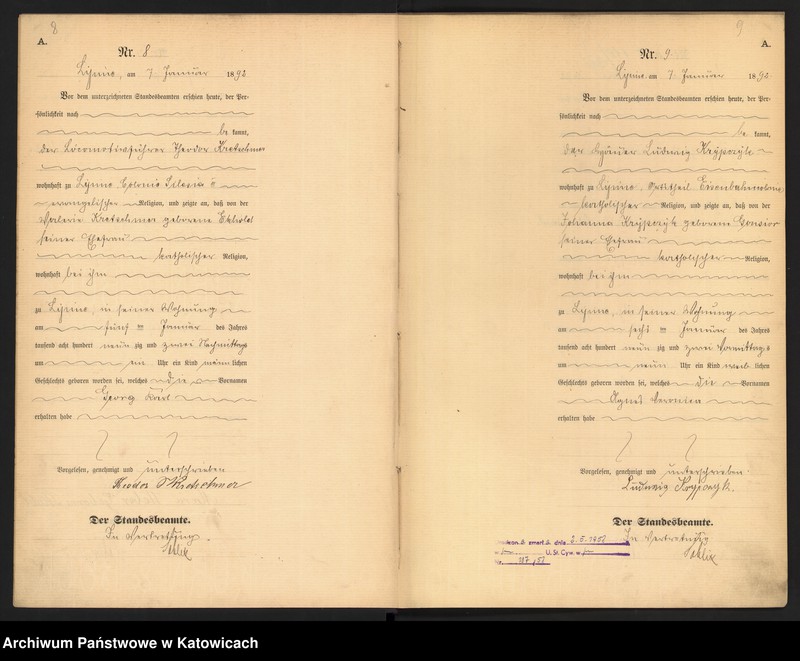 8
A.
Nr. 8
am 7 Januar 1892
Vor dem unterzeichneten Standesbeamten erschien heute, der Per-
sönlichkeit nach
be kannt,
der Locomotivführer Theodor Kretschmer
wohnhaft zu Colonie Silesia
evangelischer Religion, und zeigte an, daß von der
Valerie Kretschmer geborene
seiner Ehefrau
katholischer Religion,
wohnhaft bei ihm
zu in seiner Wohnung
am fünf ten Januar des Jahres
tausend acht hundert neun zig und zwei Nachmittag
um ein Uhr ein Kind männlichen
Geschlechts geboren worden sei, welches die Vornamen
Georg Karl
erhalten habe
Vorgelesen, genehmigt und unterschrieben
Theodor Kretschmer
Der Standesbeamte.
In Vertretung.
9
A.
Nr. 9
am 7 Januar 1892
Vor dem unterzeichneten Standesbeamten erschien heute, der Per-
sönlichkeit nach
be kannt,
der Ludwig
wohnhaft zu Ortstheil
katholischer Religion, und zeigte an, daß von der
Johanna geborene Gonsior
seiner Ehefrau
katholischer Religion,
wohnhaft bei ihm
zu in seiner Wohnung
am sechs ten Januar des Jahres
tausend acht hundert neun zig und zwei Vormittags
um neun Uhr ein Kind weiblichen
Geschlechts geboren worden sei, welches die Vornamen
Agnes Veronika
erhalten habe
Vorgelesen, genehmigt und unterschrieben.
Ludwig
Der Standesbeamte.
In Vertretung
zmarł dnia
U.St. Cyw. w
Nr.
Archiwum Państwowe w Katowicach